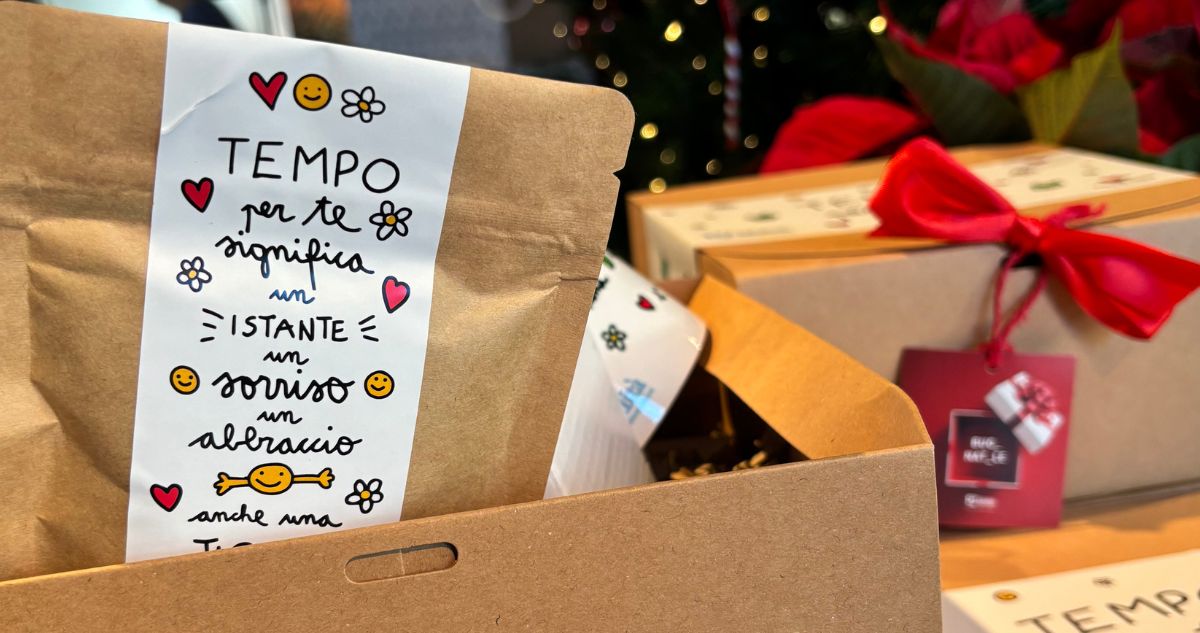 TEMPO
per te
significa
un
ISTANTE
un
sorriso
un
abbraccio
anche una
BUO_
NAT_LE
TEMPO